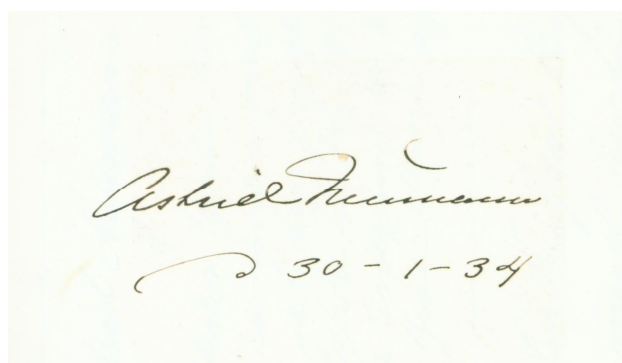 Astrid Neumann
30-1-34